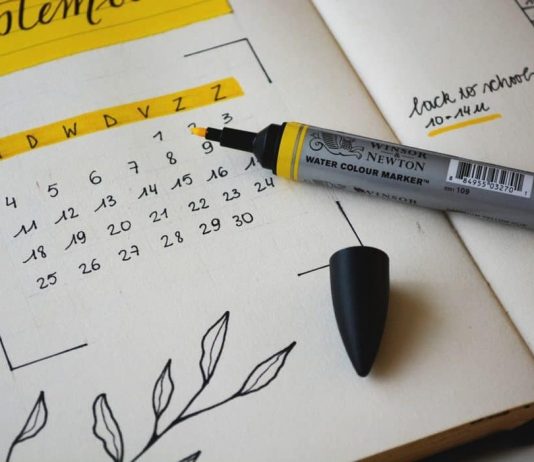 D W D V Z Z
1 2 3
4 5 6 7 8 9
11 12 13 14 15 16
18 19 20 21 22 23 24
25 26 27 28 29 30
back to school
10-14u
WINSOR
& NEWTON
WATER COLOUR MARKER™
109
8 84955 03270 1
WINSOR